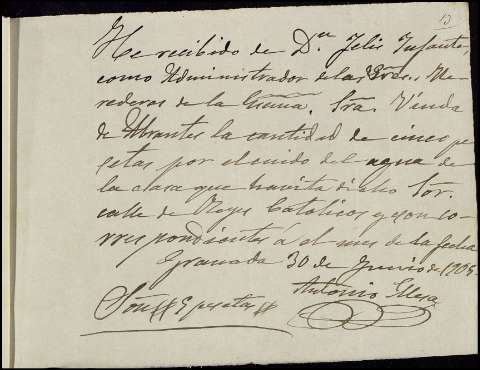 13
He recibido de Dn Felix Infantes,
como Administrador de las Sras. He-
rederas de la Excma. Sra. Viuda
de Abrantes la cantidad de cinco pe
setas por el cuido del agua de
la casa que havita dicho Sor.
calle de Reyes Catolicos y son co-
rrespondientes á el mes de la fecha
Granada 30 de Junio de 1905.
Antonio Mesa
Son # 5 pesetas #